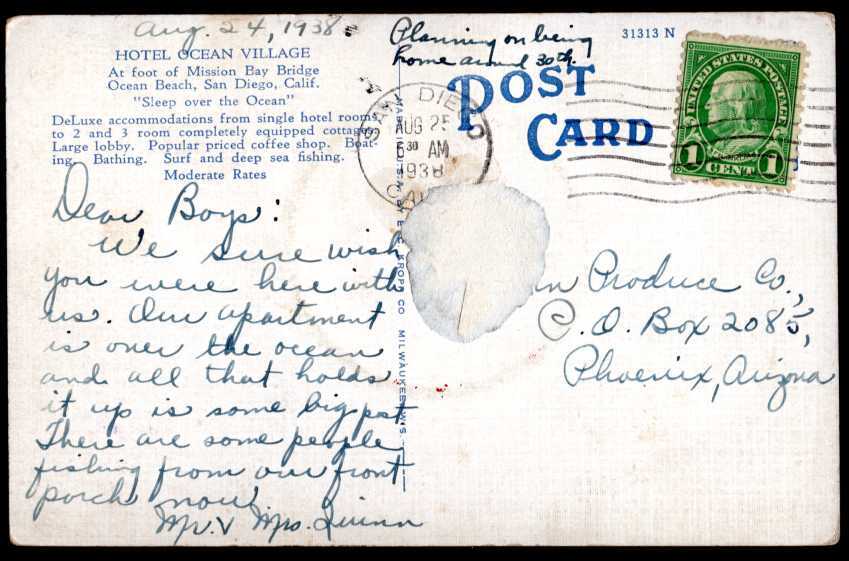 Aug. 24, 1938.
Planning on being
home around 30th.
31313 N
HOTEL OCEAN VILLAGE
At foot of Mission Bay Bridge
Ocean Beach, San Diego, Calif.
"Sleep over the Ocean"
DeLuxe accommodations from single hotel rooms
to 2 and 3 room completely equipped cottages.
Large lobby. Popular priced coffee shop. Boat-
ing. Bathing. Surf and deep sea fishing.
Moderate Rates
POST
CARD
SAN DIEGO
AUG 25
6 30 AM
1938
UNITED STATES POSTAGE
FRANKLIN
1 CENT 1
Dear Boys:
We sure wish
you were here with
us. Our apartment
is over the ocean
and all that holds
it up is some big post
There are some people
fishing from our front
porch now
Mr. & Mrs. Quinn
BY E. C. KROPP CO. MILWAUKEE, WIS.
Produce Co.,
P. O. Box 2085,
Phoenix, Arizona